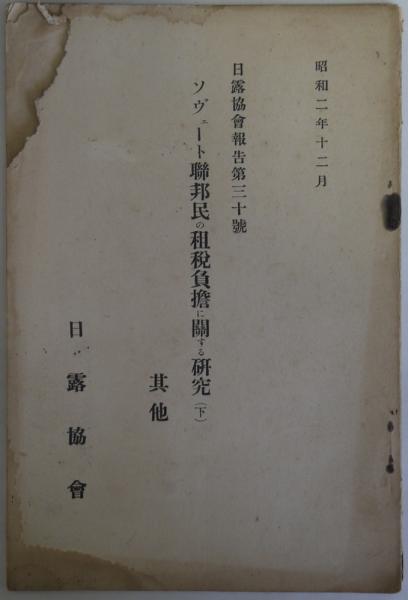 昭和二年十二月
日露協會報告第三十號
ソヴェート聯邦民の租税負擔に關する硏究(下)
其他
日露協會